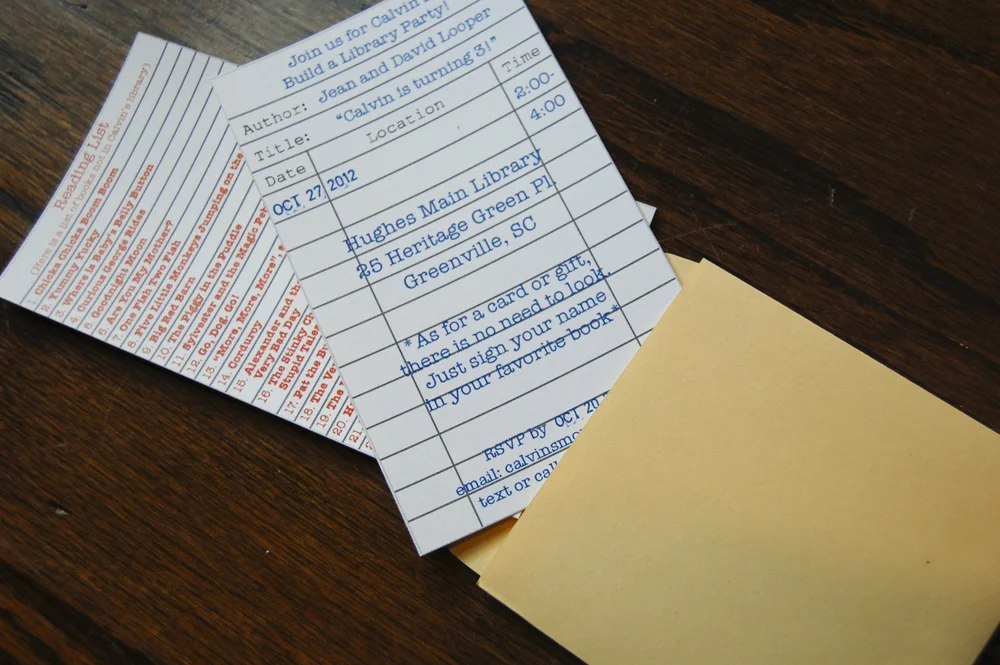 Join us for Calvin
Build a Library Party!
Author: Jean and David Looper
Title: "Calvin is turning 3!"
Date Location Time
OCT 27 2012 2:00-
4:00
Hughes Main Library
25 Heritage Green Pl.
Greenville, SC
*As for a card or gift,
there is no need to look.
Just sign your name
in your favorite book*
RSVP by OCT 20
email: calvinsmo
text or call
Reading List
(Here is a list of books not in Calvin's library)
1. Chicka Chicka Boom Boom
2. Yummy Yucky
3. Where is Baby's Belly Button
4. Curious George Rides
5. Goodnight Moon
6. Are You My Mother?
7. One Fish Two Fish
8. Five Little Monkeys Jumping on the
9. Big Red Barn
10. The Piggy in the Puddle
11. Sylvester and the Magic Pe
12. Go, Dog. Go!
13. "More, More, More"
14. Corduroy
15. Alexander and th
Very Bad Day
16. The Stinky Ch
Stupid Tales
17. Pat the B
18. The Ve
19. The
20. H
21.